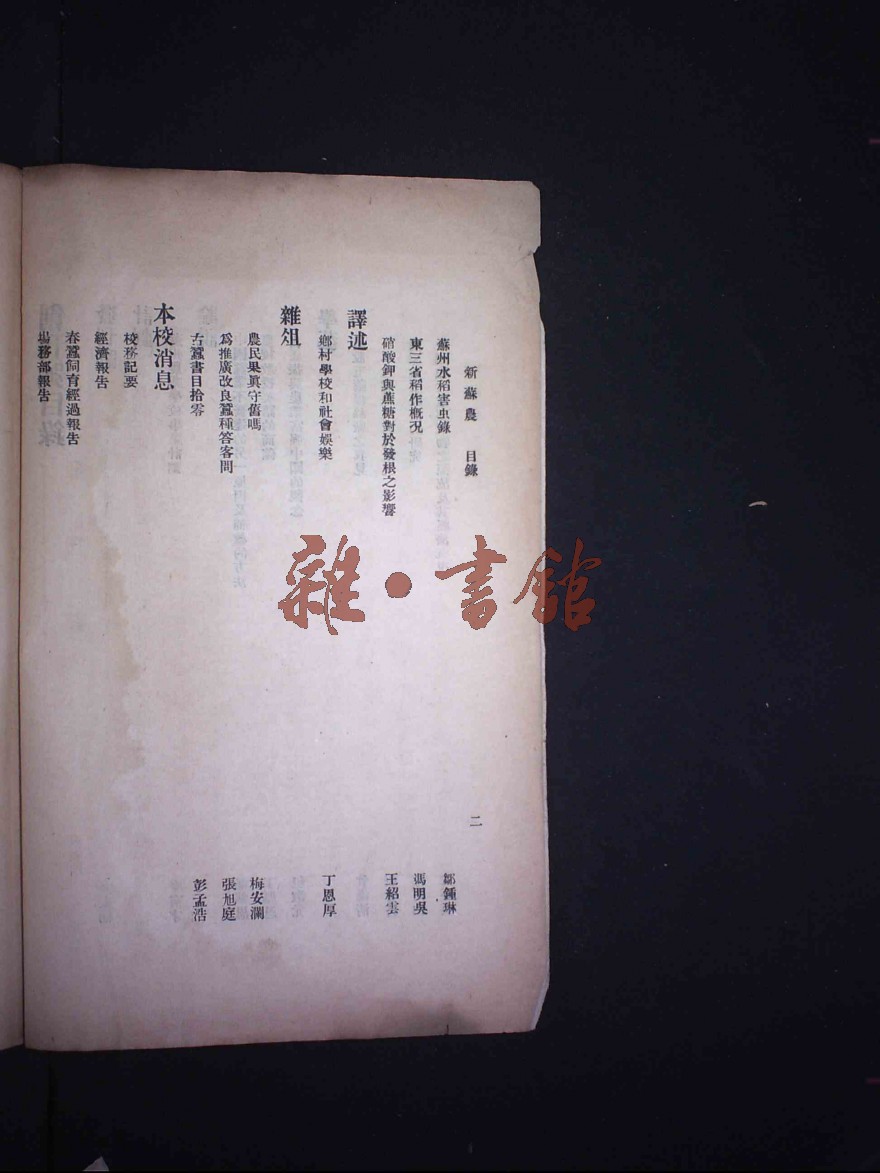 新蘇農　目錄　二
蘇州水稻害虫錄　鄒鍾琳
東三省稻作概況　馮明吳
硝酸鉀與蔗糖對於發根之影響　王紹雲
譯述
鄉村學校和社會娛樂　丁恩厚
雜俎
農民果眞守舊嗎　梅安瀾
爲推廣改良蠶種答客問　張旭庭
古蠶書目拾零　彭孟浩
本校消息
校務記要
經濟報告
春蠶飼育經過報告
場務部報告
雜·書館